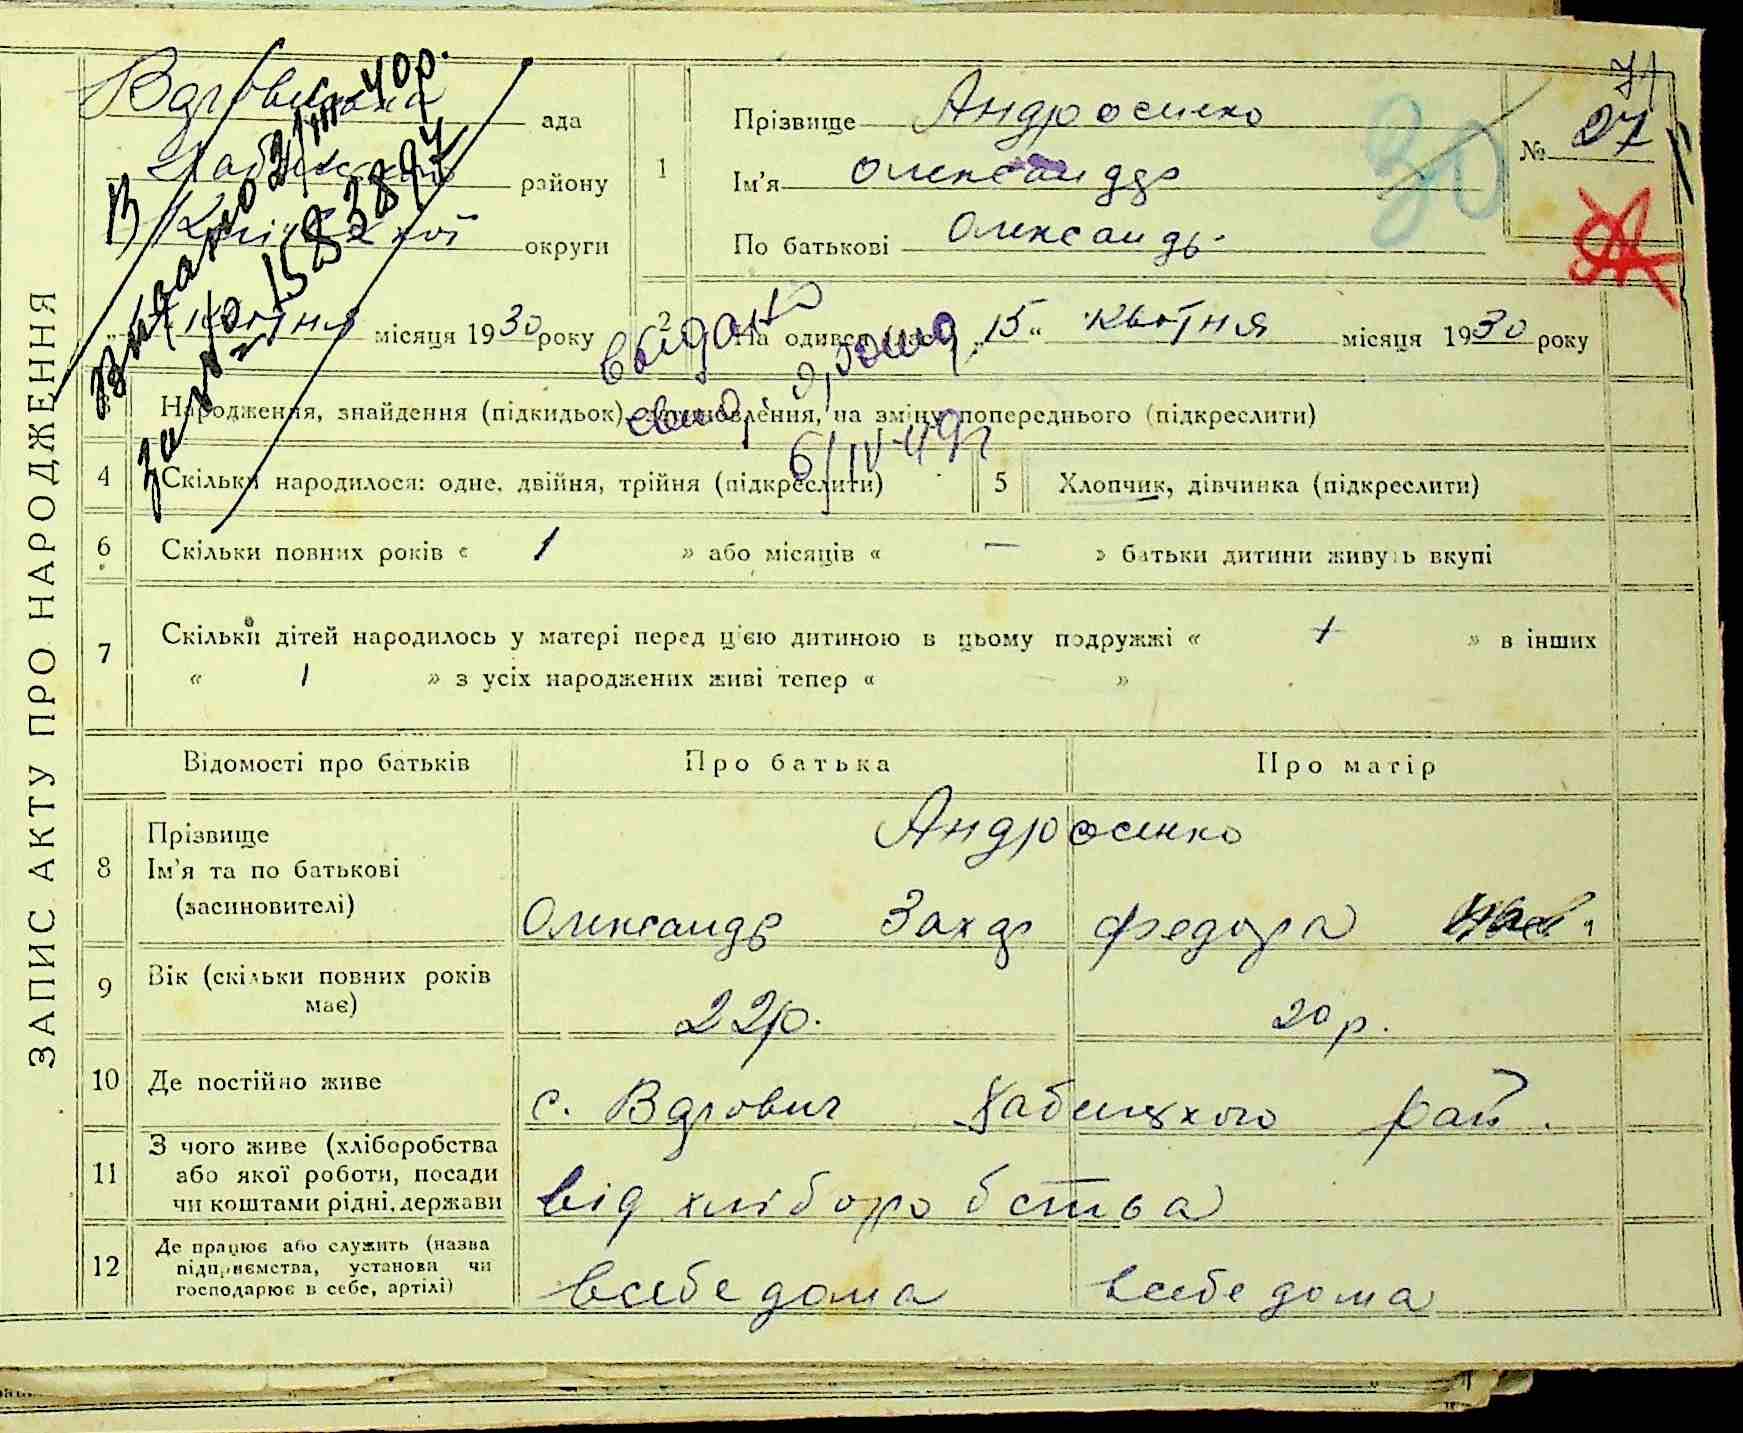 ЗАПИС АКТУ ПРО НАРОДЖЕННЯ
ада
району
округи
квітня місяця 1930 року
1
Прізвище Андросенко
Ім'я Олександр
По батькові Олександр.
№ 27
71
30
2
На одився „15“ квітня місяця 1930 року
Народження, знайдення (підкидьок), на зміну попереднього (підкреслити)
6/IV-49г
4 Скільки народилося: одне, двійня, трійня (підкреслити)
5 Хлопчик, дівчинка (підкреслити)
6 Скільки повних років « 1 » або місяців « — » батьки дитини живуть вкупі
7 Скільки дітей народилось у матері перед цією дитиною в цьому подружжі « » в інших
« 1 » з усіх народжених живі тепер « »
Відомості про батьків Про батька Про матір
8 Прізвище
Ім'я та по батькові
(засиновителі)
Андросенко
Олександр Захар Федора
9 Вік (скільки повних років має)
22р. 20р.
10 Де постійно живе
с. Вдович Хабенского рай.
11 З чого живе (хліборобства
або якої роботи, посади
чи коштами рідні, держави
від хліборобства
12 Де працює або служить (назва
підприємства, установи чи
господарює в себе, артілі)
в себе дома в себе дома